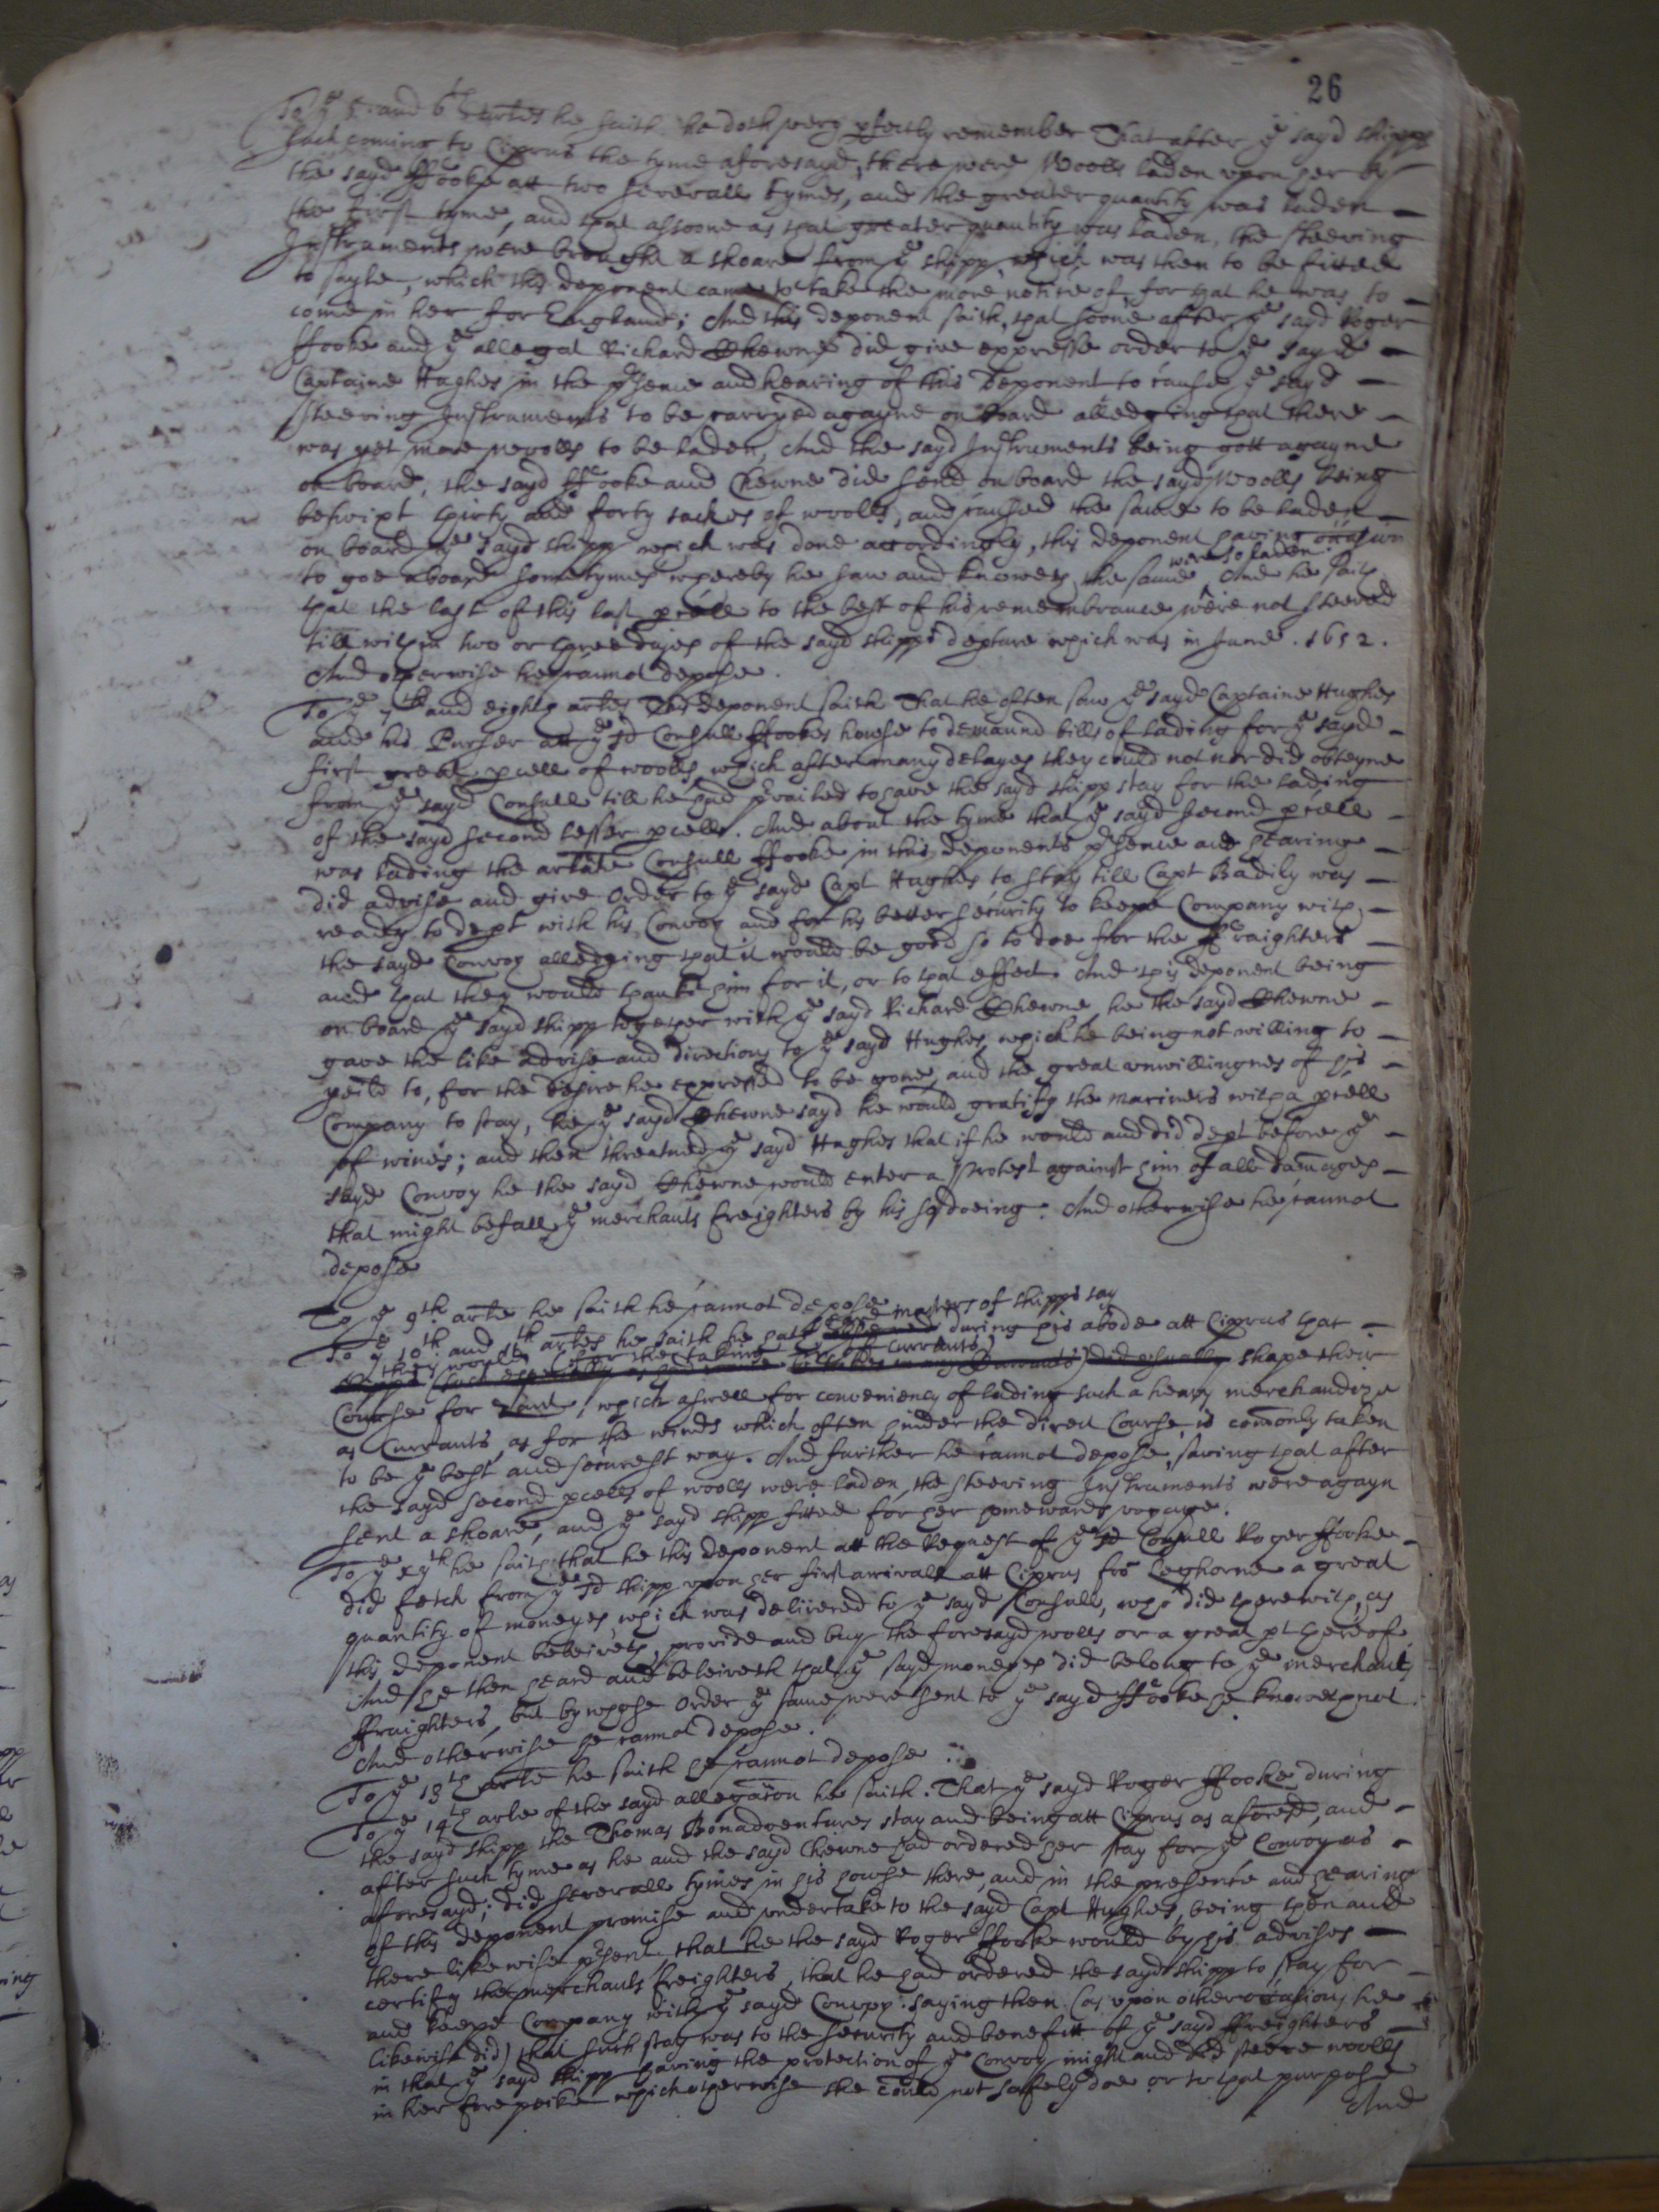 26
To ye 5 and 6th artes he saith he doth very pfectly remember That after ye sayd shipps
such coming to Ciprus the tyme aforesayd, there were Wools laden upon her by
the sayd Ffooke att two severall tymes, and the greater quantity was laden
the first tyme, and that assoone as that greater quantity was laden, the steeving
Instruments were brought a shoare from ye shipp which was then to be fitted
to sayle, which this deponent came to take the more notice of, for that he was to
come in her for England; And this deponent saith, that soone after ye sayd Roger
Ffooke and ye allegat Richard Chewne did give expresse order to ye sayd
Captaine Hughes in the psence and hearing of this deponent to cause ye sayd
steeving Instruments to be carryed agayne on board alledging that there
was yet more woolls to be laden, And the sayd Instruments being gott agayne
on board, the sayd Ffooke and Chewne did send on board the sayd Woolls being
betwixt thirty and forty sackes of woolls, and caused the same to be laden
on board ye sayd shipp which was done accordingly, this deponent having occasion
to goe aboard sometymes whereby he saw and knoweth the same were so laden. And he saith
that the last of this last pcell to the best of his remembrance were not steeved
till within two or three dayes of the sayd shipps depture which was in June. 1652.
And otherwise he cannot depose.
To ye 7th and eighth artes This deponent saith That he often saw ye sayd Captaine Hughes
and his Purser att ye sd Consull Ffookes house to demaund bills of lading for ye sayd
first great pcell of woolls, which after many delayes they could not nor did obteyne
from ye sayd Consull till he had pvailed to have the sayd shipp stay for the lading
of the sayd second lesser pcell. And about the tyme that ye sayd second pcell
was lading the arlate Consull Ffooke in this deponents psence and hearing
did advise and give Order to ye sayd Capt Hughes to stay till Capt Badily was
ready to dept with his Convoy and for his better security to keepe Company with
the sayd Convoy alledging that it would be good so to doe for the ffraighters
and that they would thanke him for it, or to that effect. And this deponent being
on board ye sayd shipp together with ye sayd Richard Chewne, he the sayd Chewne
gave the like advise and directions to ye sayd Hughes, which he being not willing to
yeild to, for the desire he expressed to be gone, and the great unwillingnes of his
Company to stay, he ye sayd Chewne sayd he would gratify the mariners with a pcell
of wines; and then threatned ye sayd Hughes that if he would and did dept before ye
sayd Convoy he the sayd Chewne would enter a Protest against him of all damages
that might befall ye merchants freighters by his so doeing. And otherwise he cannot
depose
To ye 9th arte he saith he cannot depose
To ye 10th and 11th artes he saith he hath masters of shipps say during his abode att Ciprus that
they would after the taking currants shape their
Course for Zant, which aswell for conveniency of lading such a heavy merchandize
as Currants, as for the winds which often hinder the direct Course, is comonly taken
to be ye best and securest way. And further he cannot depose, saving that after
the sayd second pcells of woolls were laden, the steeving Instruments were agayn
sent a shoare, and ye sayd shipp fitted for her homewards voyage.
To ye xijth he saith that he this deponent att the Request of ye sd Consull Roger Ffooke
did fetch from ye sd shipp upon her first arrivall att Ciprus fro Leghorne a great
quantity of moneyes which was delivered to ye sayd Consull, who did therewith, as
this deponent beleiveth, provide and buy the foresayd wolls or a great pt thereof
And he then heard and beleiveth that ye sayd moneyes did belong to ye merchants
ffraighters, but by whose Order ye same were sent to ye sayd Ffooke he knoweth not
And otherwise he cannot depose.
To ye 13th arte he saith he cannot depose
To ye 14th arte of the sayd allegation he saith. That ye sayd Roger Ffooke during
the sayd shipp the Thomas Bonadventures stay and being att Ciprus as aforesd, and
after such tyme as he and the sayd Chewne had ordered her stay for ye Convoy as
aforesayd; did severall tymes in his house there, and in the presence and hearing
of this deponent promise and undertake to the sayd Capt Hughes, being then and
there likewise psent, that he the sayd Roger Ffooke would by his advises
certify the merchants freighters, that he had ordered the sayd shipp to stay for
and keepe Company with ye sayd Convoy: saying then (as upon other occasions he
likewise did) that such stay was to the security and benefitt of ye sayd ffreighters
in that ye sayd shipp having the protection of ye Convoy might and did steeve woolls
in her fore peike which otherwise she could not safely doe or to that purpose
And